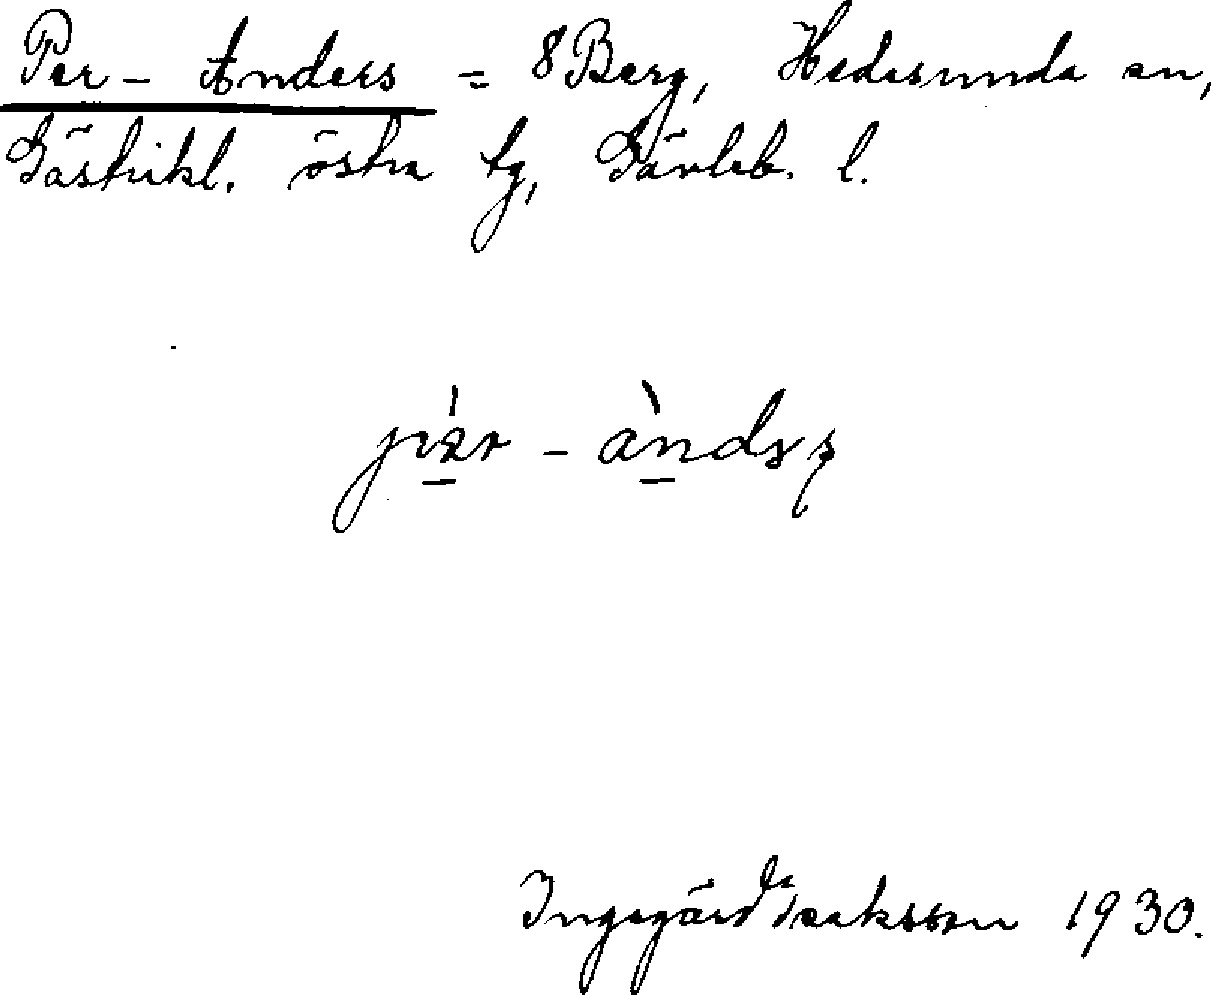 Per - Anders = 8 Berg, Hedesunda sn,
Gästrikl. östra tg, Gävleb. l.
Ingegärd Isaksson 1930.